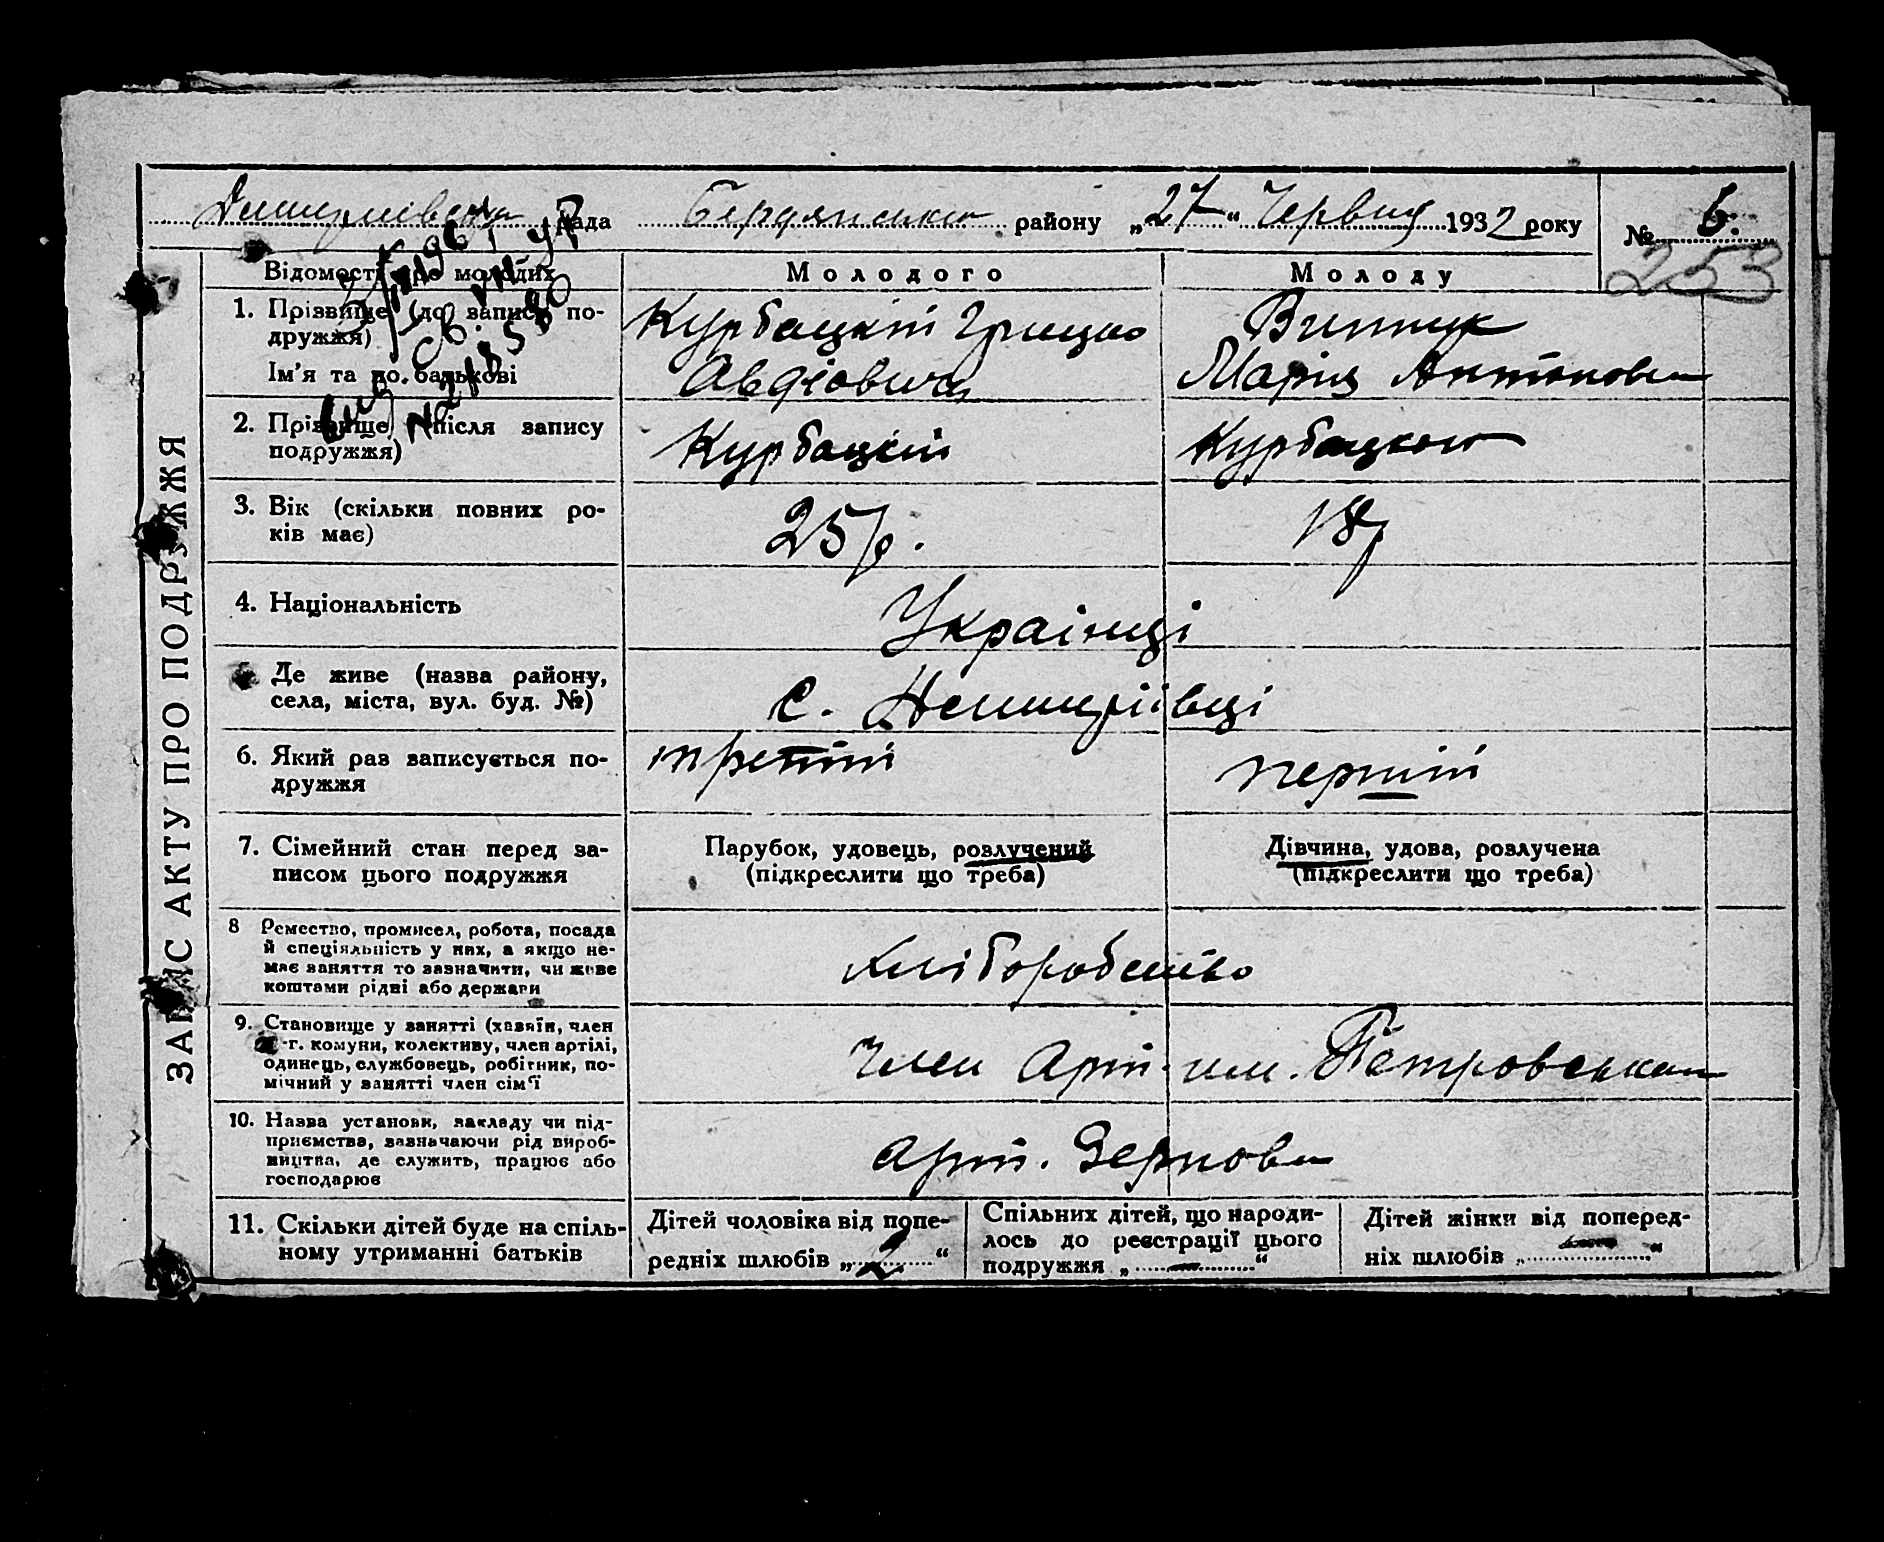 рада Бердянського району „27“ Червня 1932 року № 6.
253
Відомості про молодих Молодого Молоду
1. Прізвище (до запису по-
дружжя)
Ім'я та по батькові
Курбацкій Грицько
Авдіович
Марія Антоновн
2. Прізвище (після запису
подружжя)
Курбацкій Курбацкою
3. Вік (скільки повних ро-
ків має)
25 р. 18 р
4. Національність
Українці
Де живе (назва району,
села, міста, вул. буд. №)
с.
6. Який раз записується по-
дружжя
третій перший
7. Сімейний стан перед за-
писом цього подружжя
Парубок, удовець, розлучений
(підкреслити що треба)
Дівчина, удова, розлучена
(підкреслити що треба)
8 Ремество, промисел, робота, посада
й спеціяльність у них, а якщо не-
має заняття то зазначити, чи живе
коштами рідні або держави
хліборобство
9. Становище у занятті (хазяїн, член
-г. комуни, колективу, член артілі,
одинець, службовець, робітник, по-
мічний у занятті член сім'ї
член Арт. им. Петровського
10. Назва установи, закладу чи під-
приємства, зазначаючи рід вироб-
ництва, де служить, працює або
господарює
арт. Зернова
11. Скільки дітей буде на спіль-
ному утриманні батьків
Дітей чоловіка від попе-
редніх шлюбів „2“
Спільних дітей, що народи-
лось до реєстрації цього
подружжя „—“
Дітей жінки від поперед-
ніх шлюбів „—“
ЗАПИС АКТУ ПРО ПОДРУЖЖЯ